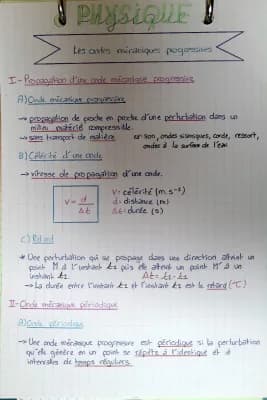 PHYSIQUE
Les ondes mécaniques progressives
I - Propagation d'une onde mécanique progressive
A) Onde mécanique progressive
→ propagation de proche en proche d'une perturbation dans un
milieu matériel compressible.
→ sans transport de matière
ex: son, ondes sismiques, corde, ressort,
ondes à la surface de l'eau
B) Célérité d'une onde
→ vitesse de propagation d'une onde.
v = d / Δt
v = célérité (m.s⁻¹)
d = distance (m)
Δt = durée (s)
C) Retard
* Une perturbation qui se propage dans une direction atteint un
point M à l'instant t₁ puis elle atteint un point M' à un
instant t₂. Δt = t₂ - t₁
→ La durée entre l'instant t₁ et l'instant t₂ est le retard (τ)
II - Onde mécanique périodique
A) Onde périodique
→ Une onde mécanique progressive est périodique si la perturbation
qu'elle génère en un point se répète à l'identique et à
intervalles de temps réguliers.